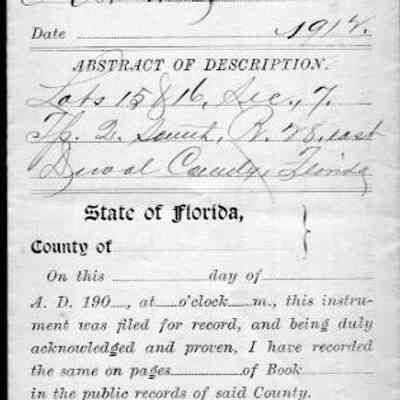 Date 1917.
ABSTRACT OF DESCRIPTION.
Lots 15 & 16, Sec., 7.
Tp. 2. South, R. 28. east
Duval County, Florida
State of Florida,
County of
On this day of
A. D. 190__, at o'clock m., this instru-
ment was filed for record, and being duly
acknowledged and proven, I have recorded
the same on pages of Book
in the public records of said County.